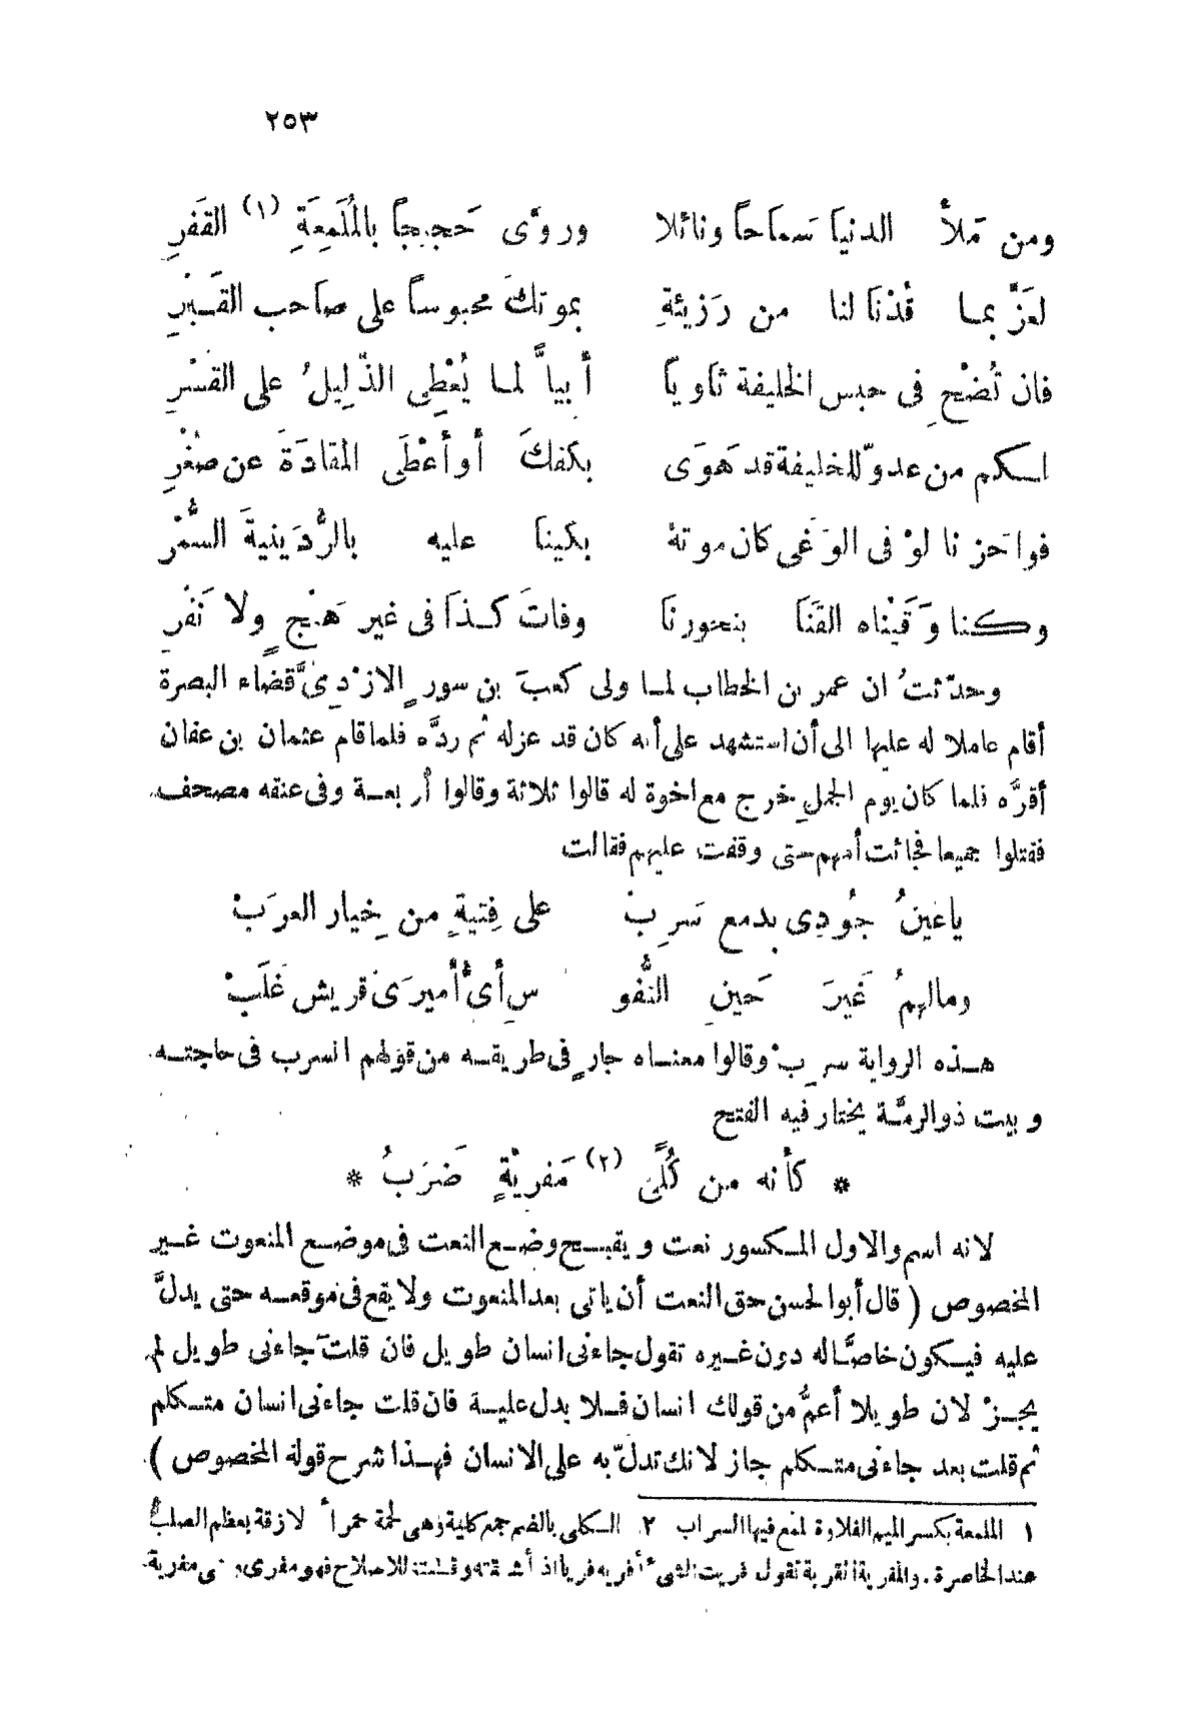 ٢٥٣
ومن مَلأَ الدنيا سَمَاحاً ونائلا وروَّى حَجِيجاً بالمُلَمِعَةِ (١) القَفرِ
لعَزَّ بمـا فُدْنَا لنا من رَزيئةِ بموتكَ محبوساً على صاحب القَـبْرِ
فان تُضْحِ فى حبس الخليفة ثاوياً أبياً لمـا يُعْطِى الذَّلِيلُ على القَسْرِ
لـكم من عدوّ للخليفة قد هَوَى بكفكَ أو أَعْطَى المقادَةَ عن صُغْرِ
فواحَزنا لوْ فى الوَغى كان موتهُ بكينا عليه بالرُّدَينيةِ السُّمْرِ
وكـنا وَقَيْناه القَنَا بنحورنا وفاتَ كـذا فى غير هَيْجٍ ولا نَفْرِ
وحدّثتُ ان عمر بن الخطاب لمـا ولى كعبَ بن سورٍ الازْدِىَّ قضاء البصرة
أقام عاملا له عليها الى أن استشهد على أنه كان قد عزله ثم ردَّه فلما قام عثمان بن عفان
أقرَّه فلما كان يوم الجملِ خرج مع اخوة له قالوا ثلاثة وقالوا أربعـة وفى عنقه مصحف
فقتلوا جميعا فجائت أمهم حتى وقفت عليهم فقالت
ياعَينُ جُودِى بدمع سَرِبْ على فِتيةٍ من خِيار العرَبْ
ومالهمُ غَيرَ حَينِ النُّفو سِ أَىُّ أَميرَىْ قريش غَلَبْ
هـذه الرواية سرِبْ وقالوا معنـاه جارٍ فى طريقـه من قولهم انسرب فى حاجتـه
وبيت ذو الرمَّـة يختار فيه الفتح
* كأنه من كُلًى (٢) مَفريْةٍ سَرَبُ *
لانه اسم والاول المـكسور نعت ويقبـح وضـع النعت فى موضـع المنعوت غـير
المخصوص ( قال أبو الحسن حق النعت أن ياتى بعد المنعوت ولا يقع فى موقعـه حتى يدلَّ
عليه فيـكون خاصَّـا له دون غـيره تقول جاءنى انسان طويل فان قلتَ جاءنى طويل لم
يجـزْ لان طويلا أعمُّ من قولك انسان فـلا يدل عليـه فان قلت جاءنى انسان متـكلم
ثم قلت بعد جاءنى متـكلم جاز لانك تدلّ به على الانسان فهـذا شرح قوله المخصوص )
١ الملمعة بكسر الميم الفلاة لمع فيها السراب ٢ الـكلى بالضم جمع كلية وهى لحمة حمرا لازقة بعظم الصلب
عند الخاصرة . والمفرية القربة تقول فريت الشئ أفريه فريا اذا شققته وقلبته للاصلاح فهو مفرى وهى مفرية